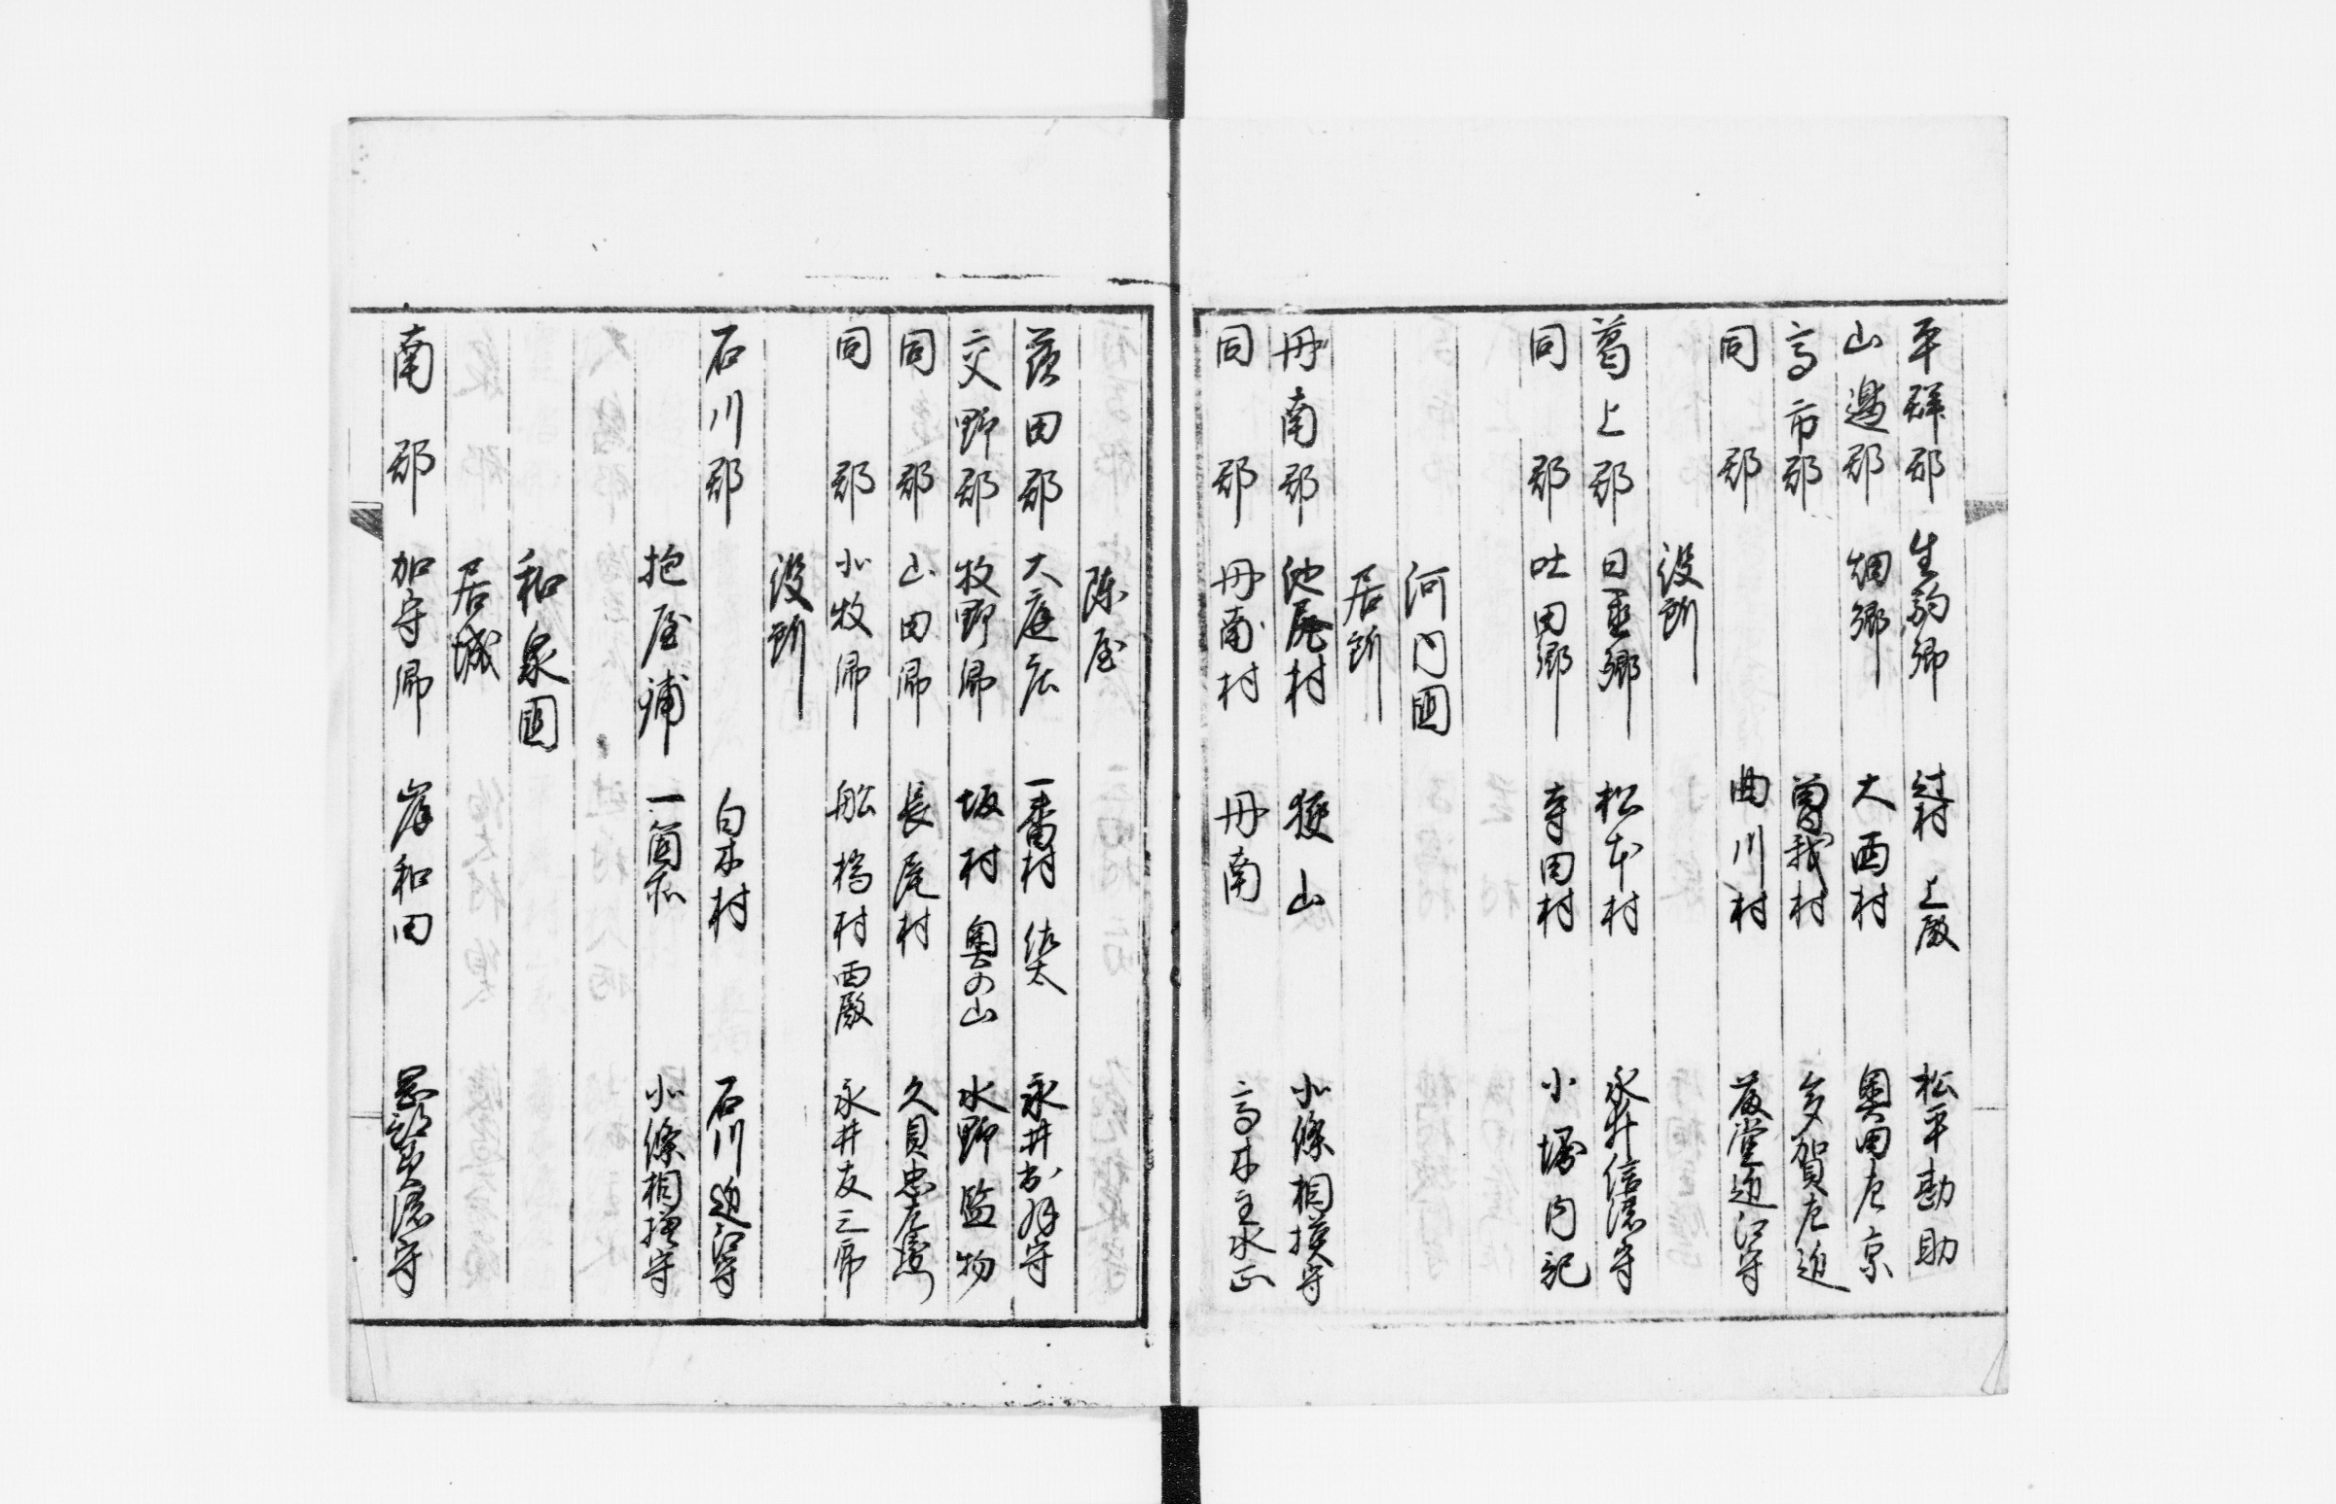 平群郡 生駒郷 辻村 上殿 松平勘助
山邉郡 畑郷 大西村 奥田左京
高市郡 曽我村 多賀左近
同郡 曲川村 藤堂近江守
役所
葛上郡 日置郷 松本村 永井信濃守
同郡 吐田郷 寺田村 小堀内記
河内国
居所
丹南郡 池尻村 狭山 北條相模守
同郡 丹南村 丹南 高木主水正
陣屋
茨田郡 大庭庄 一番村 佐太 永井出羽守
交野郡 牧野郷 坂村 奥の山 水野監物
同郡 山田郷 長尾村 久貝忠左衛門
同郡 小牧郷 船橋村 西殿 永井友三郎
役所
石川郡 白木村 石川近江守
抱屋鋪 一箇所 北條相模守
和泉国
居城
南郡 加守郷 岸和田 岡部美濃守